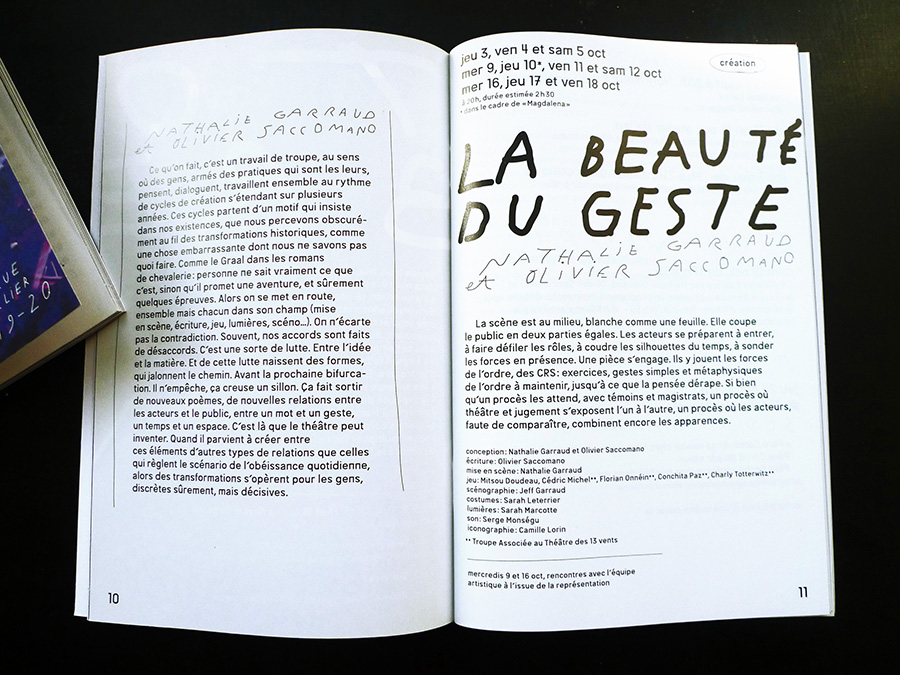 NATHALIE GARRAUD
et OLIVIER SACCOMANO
Ce qu'on fait, c'est un travail de troupe, au sens
où des gens, armés des pratiques qui sont les leurs,
pensent, dialoguent, travaillent ensemble au rythme
de cycles de création s'étendant sur plusieurs
années. Ces cycles partent d'un motif qui insiste
dans nos existences, que nous percevons obscuré-
ment au fil des transformations historiques, comme
une chose embarrassante dont nous ne savons pas
quoi faire. Comme le Graal dans les romans
de chevalerie: personne ne sait vraiment ce que
c'est, sinon qu'il promet une aventure, et sûrement
quelques épreuves. Alors on se met en route,
ensemble mais chacun dans son champ (mise
en scène, écriture, jeu, lumières, scéno...). On n'écarte
pas la contradiction. Souvent, nos accords sont faits
de désaccords. C'est une sorte de lutte. Entre l'idée
et la matière. Et de cette lutte naissent des formes,
qui jalonnent le chemin. Avant la prochaine bifurca-
tion. Il n'empêche, ça creuse un sillon. Ça fait sortir
de nouveaux poèmes, de nouvelles relations entre
les acteurs et le public, entre un mot et un geste,
un temps et un espace. C'est là que le théâtre peut
inventer. Quand il parvient à créer entre
ces éléments d'autres types de relations que celles
qui règlent le scénario de l'obéissance quotidienne,
alors des transformations s'opèrent pour les gens,
discrètes sûrement, mais décisives.
10
jeu 3, ven 4 et sam 5 oct
mer 9, jeu 10*, ven 11 et sam 12 oct
mer 16, jeu 17 et ven 18 oct
à 20h, durée estimée 2h30
* dans le cadre de «Magdalena»
création
LA BEAUTÉ
DU GESTE
NATHALIE GARRAUD
et OLIVIER SACCOMANO
La scène est au milieu, blanche comme une feuille. Elle coupe
le public en deux parties égales. Les acteurs se préparent à entrer,
à faire défiler les rôles, à coudre les silhouettes du temps, à sonder
les forces en présence. Une pièce s'engage. Ils y jouent les forces
de l'ordre, des CRS: exercices, gestes simples et métaphysiques
de l'ordre à maintenir, jusqu'à ce que la pensée dérape. Si bien
qu'un procès les attend, avec témoins et magistrats, un procès où
théâtre et jugement s'exposent l'un à l'autre, un procès où les acteurs,
faute de comparaître, combinent encore les apparences.
conception: Nathalie Garraud et Olivier Saccomano
écriture: Olivier Saccomano
mise en scène: Nathalie Garraud
jeu: Mitsou Doudeau, Cédric Michel**, Florian Onnéin**, Conchita Paz**, Charly Totterwitz**
scénographie: Jeff Garraud
costumes: Sarah Leterrier
lumières: Sarah Marcotte
son: Serge Monségu
iconographie: Camille Lorin
** Troupe Associée au Théâtre des 13 vents
mercredis 9 et 16 oct, rencontres avec l'équipe
artistique à l'issue de la représentation
11